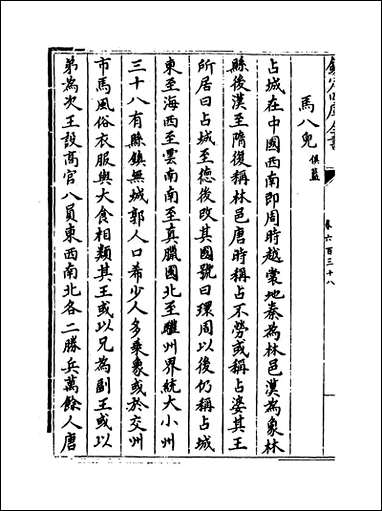 欽定四庫全書
卷六百三十八
馬八兒 俱藍
占城在中國西南即周時越裳地秦為林邑漢為象林
縣後漢至隋後稱林邑唐時稱占不勞或稱占婆其王
所居曰占城至德後改其國號曰環周以後仍稱占城
東至海西至雲南南至真臘國北至驩州界統大小州
三十八有縣鎮無城郭人口希少人多乘象或於交州
市馬風俗衣服與大食相類其王或以兄為副王或以
弟為次王設高官八員東西南北各二勝兵萬餘人唐